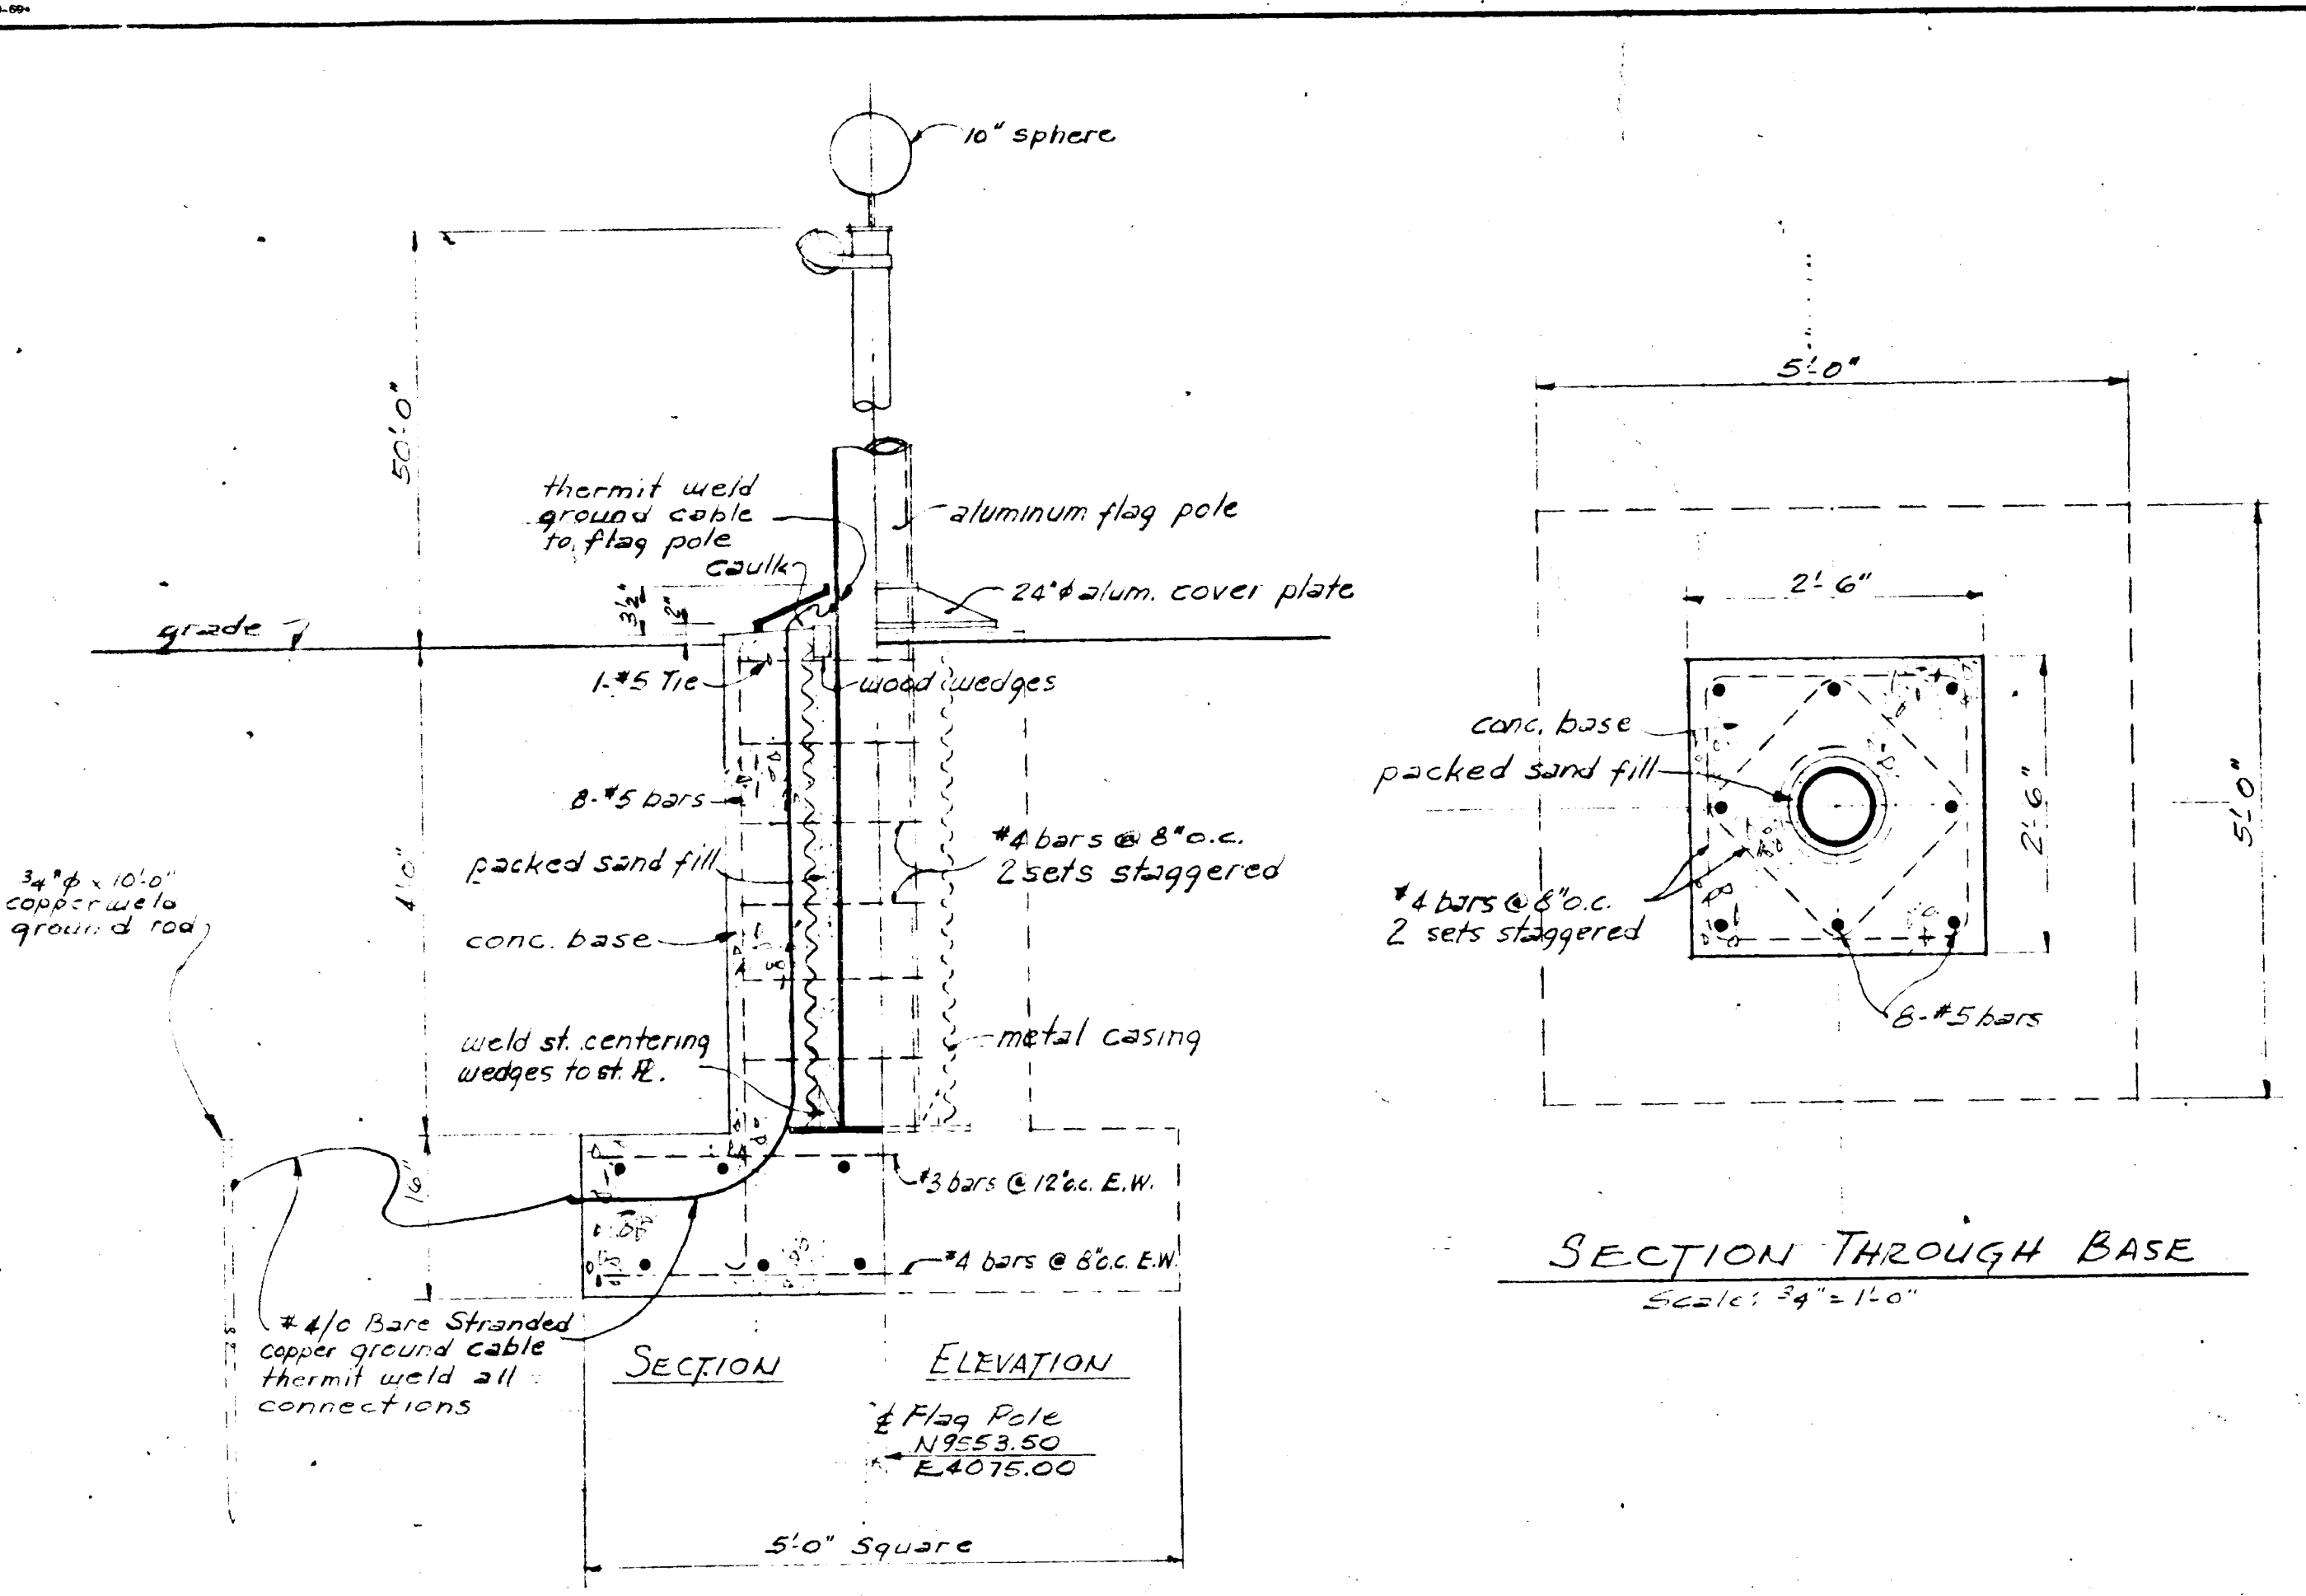 10" sphere
50'-0"
thermit weld
ground cable
to flag pole
caulk
aluminum flag pole
24"φ alum. cover plate
3½"
2"
grade
1-#5 Tie
wood wedges
8-#5 bars
packed sand fill
#4 bars @ 8" o.c.
2 sets staggered
4'-0"
3/4"φ x 10'-0"
copperweld
ground rod
conc. base
weld st. centering
wedges to st. PL.
metal casing
16"
#3 bars @ 12" o.c. E.W.
#4 bars @ 8" o.c. E.W.
#4/0 Bare Stranded
copper ground cable
thermit weld all
connections
SECTION
ELEVATION
℄ Flag Pole
N9553.50
E4075.00
5'-0" Square
5'-0"
2'-6"
conc. base
packed sand fill
2'-6"
5'-0"
#4 bars @ 8" o.c.
2 sets staggered
8-#5 bars
SECTION THROUGH BASE
Scale: 3/4" = 1'-0"